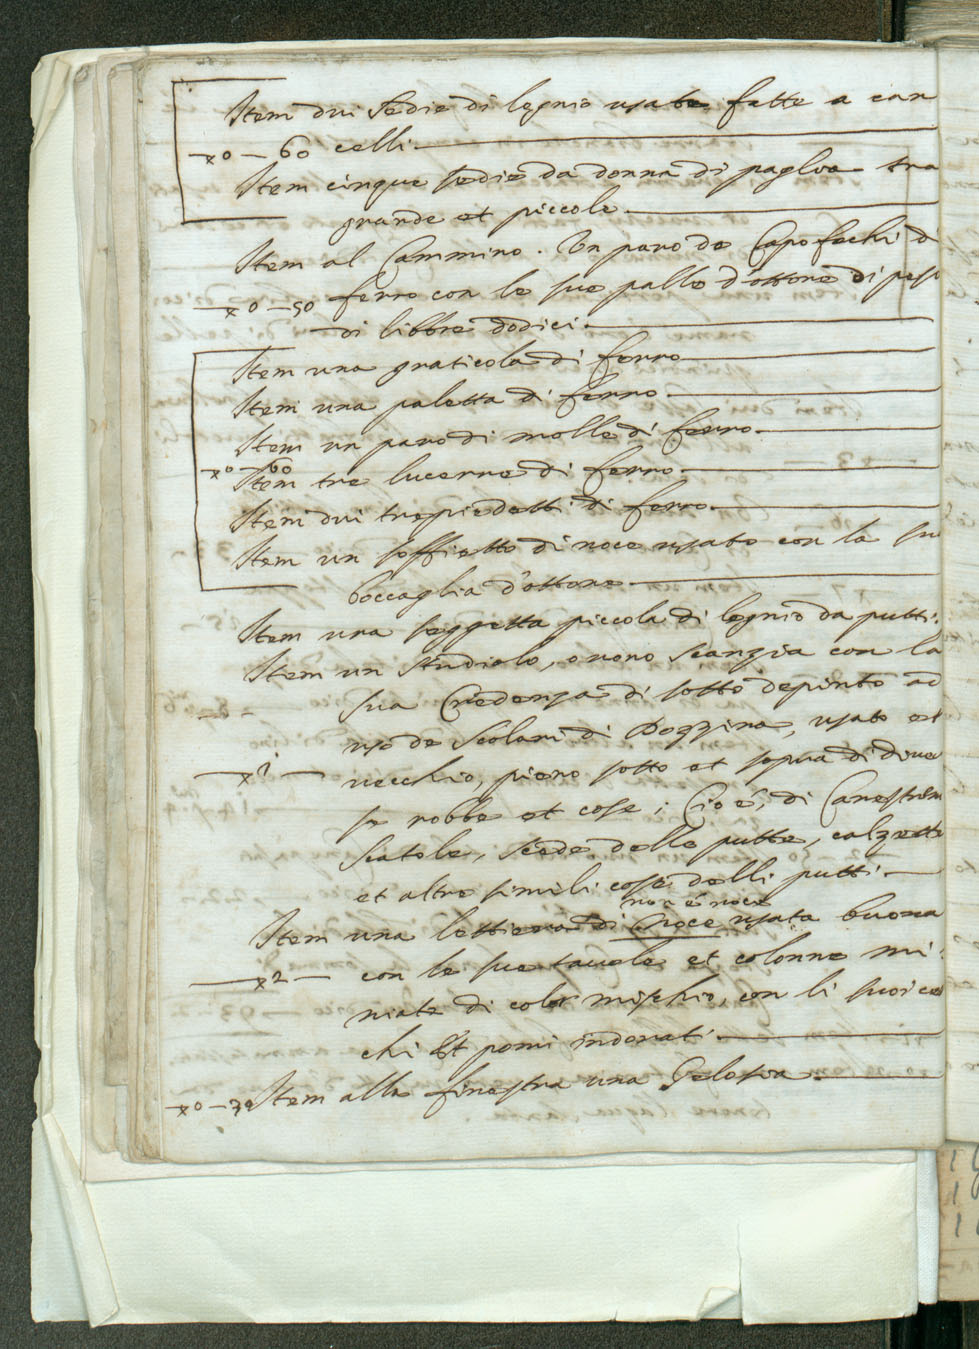 Item dui sedie di legnio usate fatte a can
x0 — 60 celli.
Item cinque sedie da donna di paglia tra
grande et piccole
Item al Cammino. Un paro de Capofochi d
x0 — 50 ferro con le sue palle d'ottone di peso
di libbre dodici.
Item una graticola di ferro
Item una paletta di ferro
Item un paro di molle di ferro.
x0 — 60
Item tre lucerne di ferro
Item dui trepiedetti di ferro
Item un soffietto di noce usato con la su
boccaglia d'ottone
Item una seggetta piccola di legnio da putti:
Item un studiolo, overo scanzia con la
sua Credenza di sotto depinto ad
uso de Scolari di Dozzina, usato et
x1 vecchio, pieno sotto et sopra di diver
se robbe et cose; Cio è, di Canestrini
scatole, scede delle putte, calzette
et altre simili cose delli putti.
non è noce
Item una lettiera di Noce usata buona
x2 con le sue tavole et colonne mi:
niate di color mischio, con li suoi
chi Et pomi indorati
x0 — 70 Item alla finestra una Gelosia